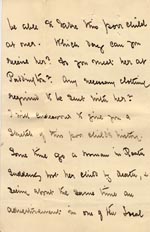 be able to take this poor child
at once. Which way can you
receive her? Do you meet her at
Paddington? Any necessary clothing
required to be sent with her?
I will endeavour to give you a
sketch of this poor child's history.
Some time ago a woman in
suddenly lost her child by death, &
seeing about the same time an
advertisement in one of the local